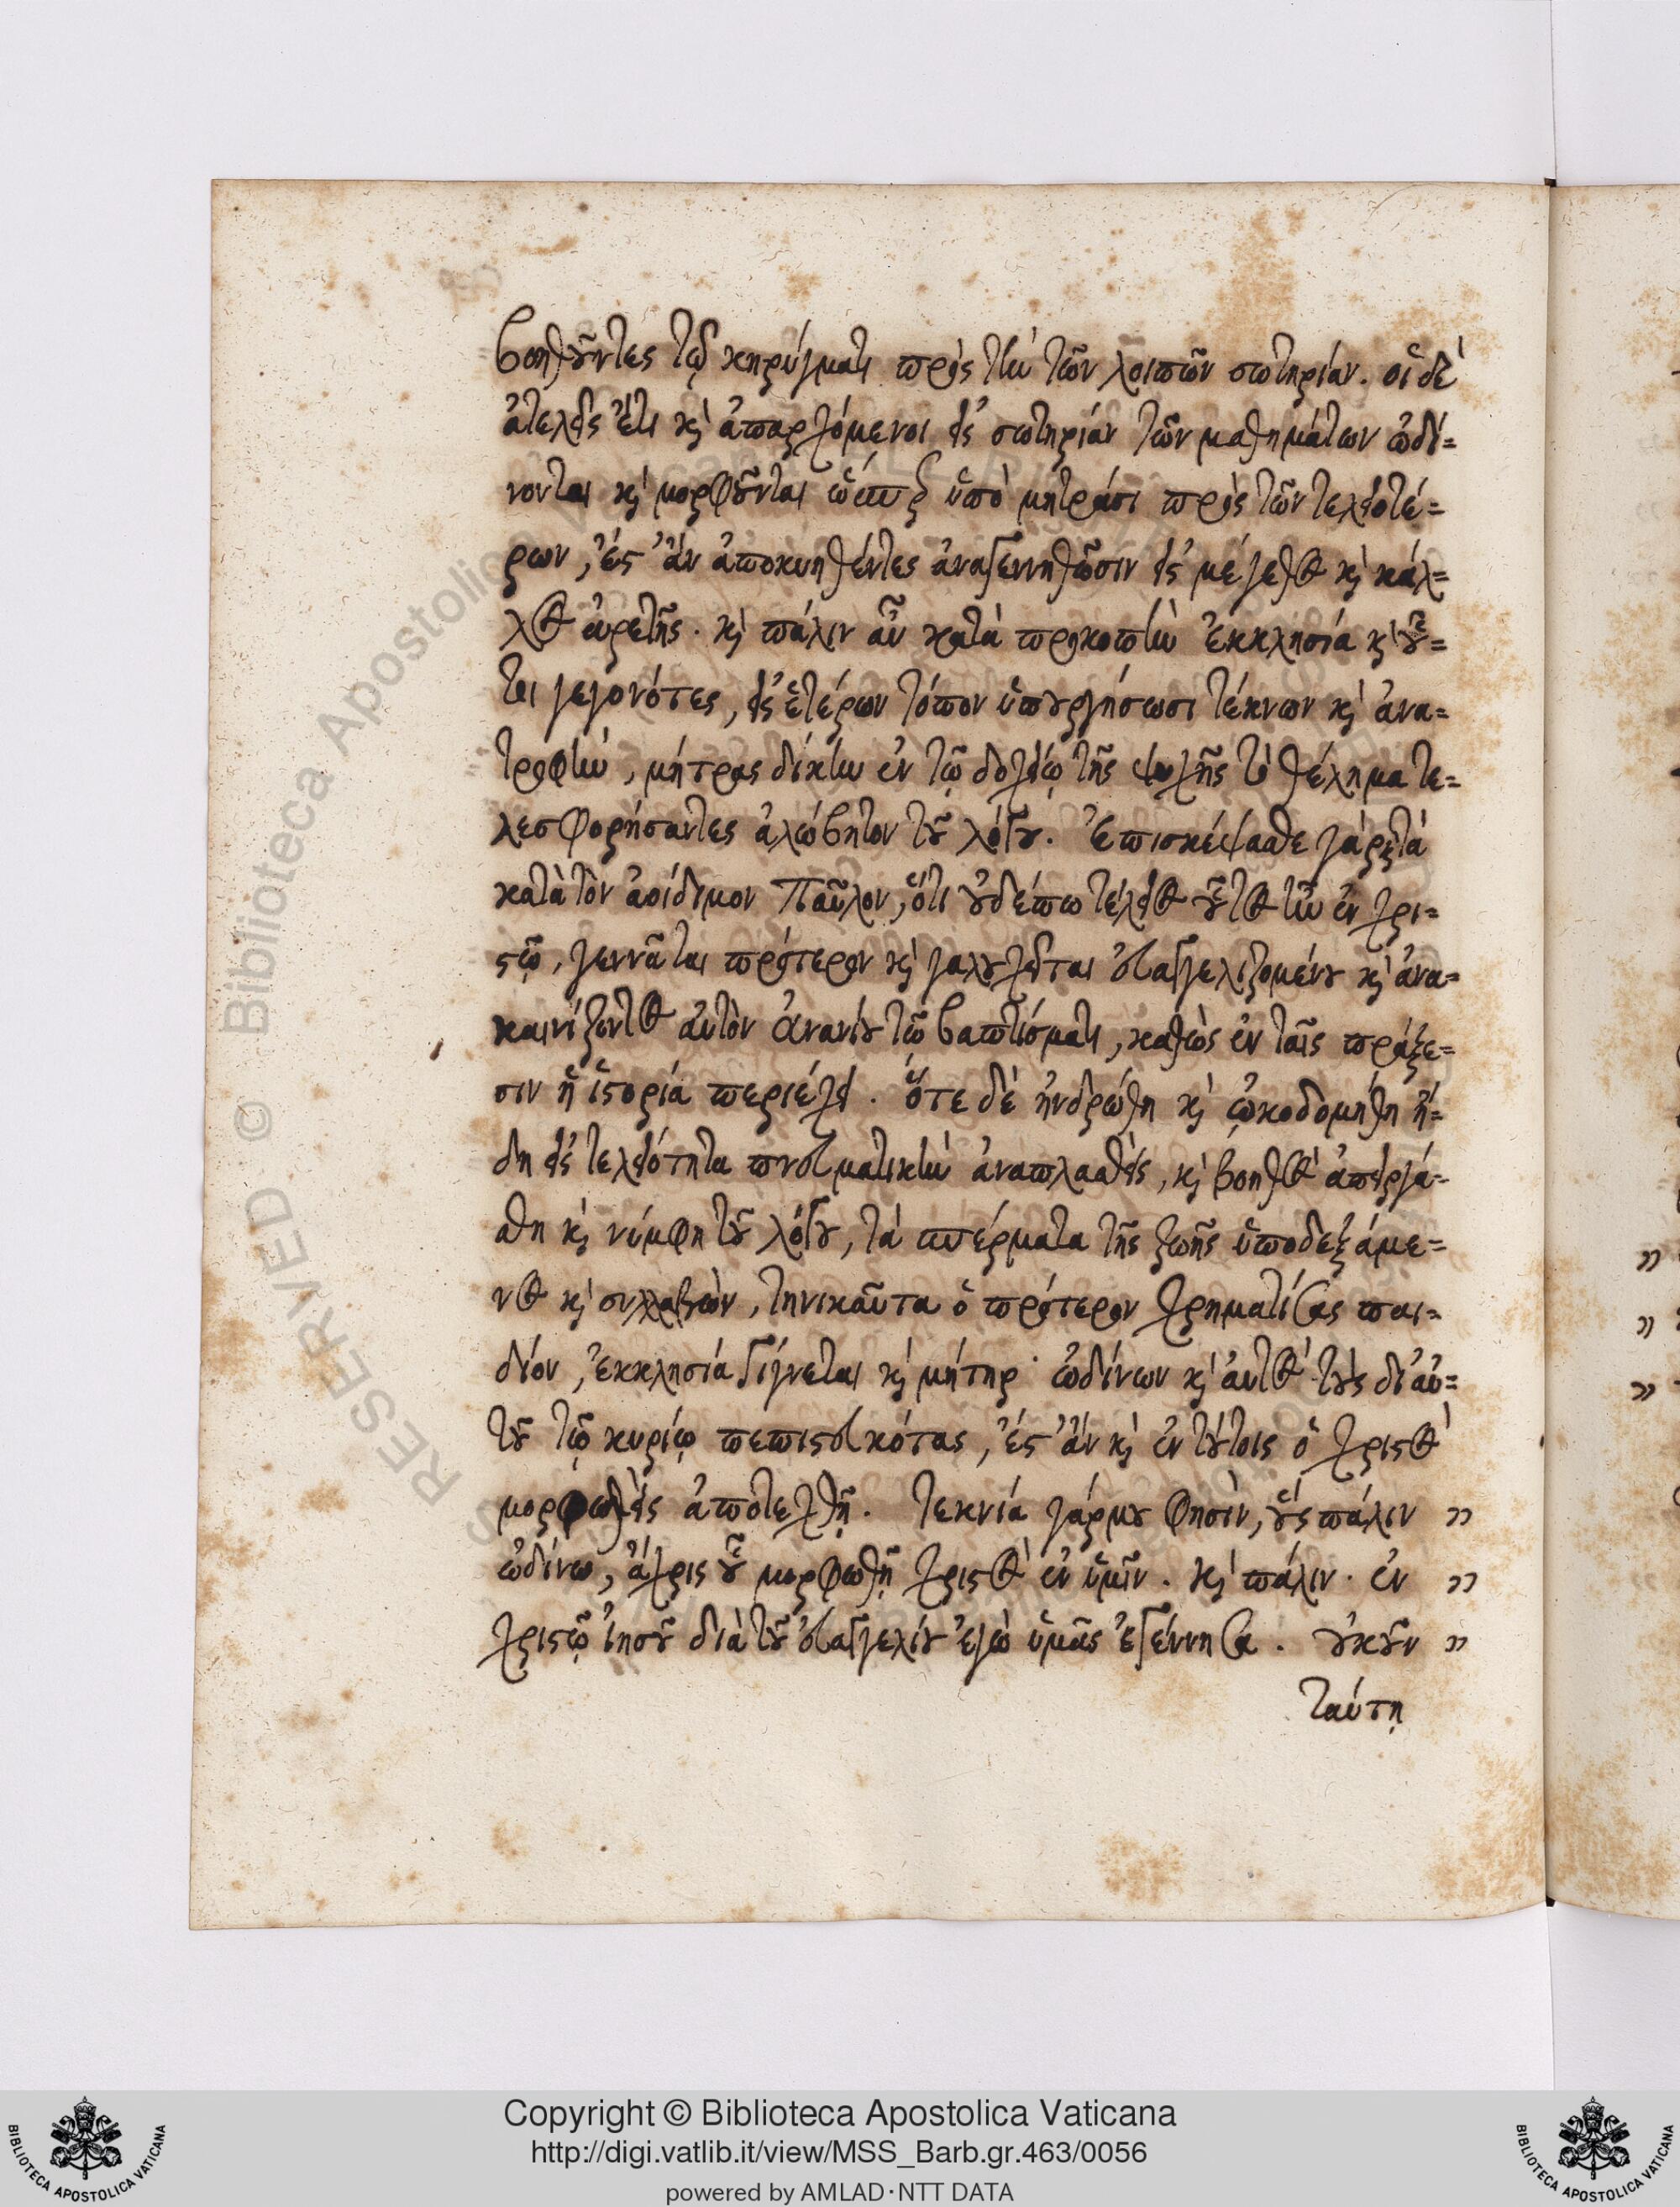 βοηθοῦντες τῷ κηρύγματι πρὸς τὴν τῶν λοιπῶν σωτηρίαν. οἱ δὲ
ἀτελεῖς ἔτι καὶ ἀπαρχόμενοι εἰς σωτηρίαν τῶν μαθημάτων ὠδί=
νονται καὶ μορφοῦνται ὥσπερ ὑπὸ μητράσι πρὸς τῶν τελειοτέ=
ρων, ἔς τ' ἂν ἀποκυηθέντες ἀναγεννηθῶσιν εἰς μέγεθος καὶ κάλ=
λος ἀρετῆς. καὶ πάλιν αὖ κατὰ προκοπὴν ἐκκλησία καὶ οὗ=
τοι γεγονότες, εἰς ἑτέρων τόπον ὑπουργήσωσι τέκνων καὶ ἀνα=
τροφὴν, μήτρας δίκην ἐν τῷ δοχείῳ τῆς ψυχῆς τὸ θέλημα τε=
λεσφορήσαντες ἀλώβητον τοῦ λόγου. Ἐπισκέψασθε γὰρ τὰ
κατὰ τὸν ἀοίδιμον Παῦλον, ὅτι οὐδέπω τέλειος οὗτος τῶν ἐν χρι=
στῷ, γεννᾶται πρότερον καὶ γαλουχεῖται εὐαγγελιζομένου καὶ ἀνα=
καινίζοντος αὐτὸν Ἀνανίου τῷ βαπτίσματι, καθὼς ἐν ταῖς πράξε=
σιν ἡ ἱστορία περιέχει. ὅτε δὲ ἠνδρώθη καὶ ᾠκοδομήθη ἤ=
δη εἰς τελειότητα πνευματικὴν ἀναπλασθεὶς, καὶ βοηθὸς ἀπειργά=
σθη καὶ νύμφη τοῦ λόγου, τὰ σπέρματα τῆς ζωῆς ὑποδεξάμε=
νος καὶ συλλαβὼν, τηνικαῦτα ὁ πρότερον χρηματίσας παι=
δίον, ἐκκλησία γίγνεται καὶ μήτηρ· ὠδίνων καὶ αὐτὸς τοὺς δι' αὐ=
τοῦ τῷ κυρίῳ πεπιστευκότας, ἔς τ' ἂν καὶ ἐν τούτοις ὁ χριστὸς
μορφωθεὶς ἀποτεχθῇ. Τεκνία γάρ μου φησὶν, οὓς πάλιν »
ὠδίνω, ἄχρις οὗ μορφωθῇ χριστὸς ἐν ὑμῖν. καὶ πάλιν· ἐν »
χριστῷ ἰησοῦ διὰ τοῦ εὐαγγελίου ἐγὼ ὑμᾶς ἐγέννησα. οὐκοῦν »
ταύτῃ
RESERVED © Biblioteca Apostolica
Copyright © Biblioteca Apostolica Vaticana
http://digi.vatlib.it/view/MSS_Barb.gr.463/0056
powered by AMLAD·NTT DATA
BIBLIOTECA APOSTOLICA VATICANA
BIBLIOTECA APOSTOLICA VATICANA